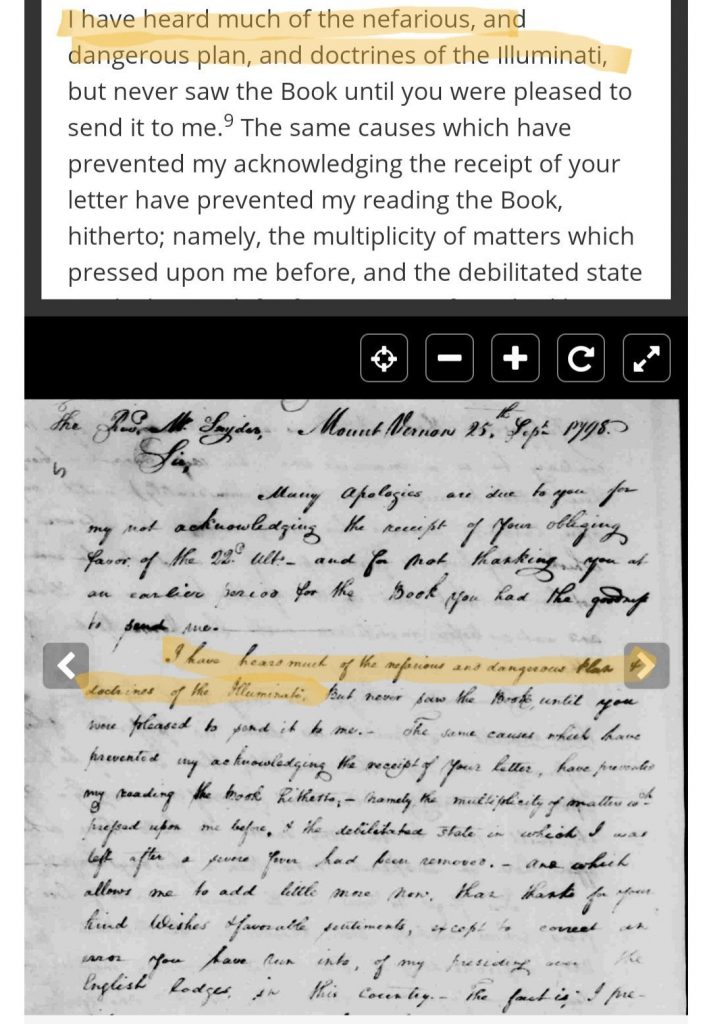 I have heard much of the nefarious, and
dangerous plan, and doctrines of the Illuminati,
but never saw the Book until you were pleased to
send it to me.⁹ The same causes which have
prevented my acknowledging the receipt of your
letter have prevented my reading the Book,
hitherto; namely, the multiplicity of matters which
pressed upon me before, and the debilitated state
The Revd. Mr. Snyder, Mount Vernon 25th Sept 1798.
Sir,
Many apologies are due to you for
my not acknowledging the receipt of your obliging
favor of the 22d Ulto- and for not thanking you at
an earlier period for the Book you had the goodness
to send me.
I have heard much of the nefarious and dangerous plan &
doctrines of the Illuminati, but never saw the Book until you
were pleased to send it to me.- The same causes which have
prevented my acknowledging the receipt of your letter, have prevented
my reading the Book hitherto;- namely the multiplicity of matters wch
pressed upon me before, & the debilitated state in which I was
left after a severe fever had been removed.- and which
allows me to add little more now, than thanks for your
kind Wishes & favorable sentiments, except to correct an
error you have run into, of my presiding over the
English lodges in this Country.- The fact is, I pre-